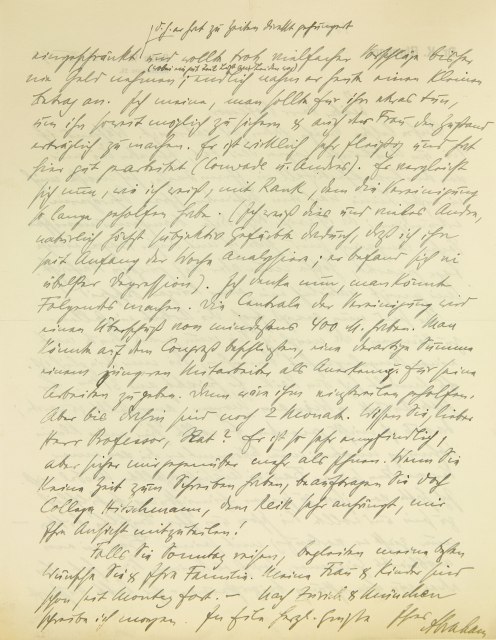 d. h. er hat zu Zeiten direkt gehungert
eingeschränkt und wollte trotz vielfacher Vorschläge bisher
kein Geld nehmen; endlich nahm er heute einen kleinen
Betrag an. Ich meine, man sollte für ihn etwas tun,
um ihn soweit möglich zu sichern & auch der Frau den Zustand
erträglich zu machen. Er ist wirklich sehr fleissig und hat
hier gut gearbeitet (Comrade u. Anders). Er vergleicht
sich nun, wie ich weiß, mit Rank, dem die Vereinigung
so lange geholfen habe. (Ich weiß dies und vieles Andre,
natürlich höchst subjektiv Gefärbte dadurch, daß ich ihn
seit Anfang der Woche analysiere; er befand sich in
übelster Depression). Ich denke nun, man könnte
Folgendes machen. Die Centrale der Vereinigung wird
einen Überschuß von mindestens 400 M. haben. Man
könnte auf dem Congreß beschließen, eine derartige Summe
einem jüngeren Mitarbeiter als Anerkennung für seine
Arbeiten zu geben. Dann wäre ihm einstweilen geholfen.
Aber bis dahin sind noch 2 Monate. Wissen Sie, lieber
Herr Professor, Rat? Er ist so sehr empfindlich,
aber sicher mir gegenüber mehr als Ihnen. Wenn Sie
keine Zeit zum Schreiben haben, beauftragen Sie doch
Collegen Hitschmann, dem Reik sehr anhängt, mir
Ihre Ansicht mitzuteilen!
Falls Sie Sonntag reisen, begleiten meine besten
Wünsche Sie & Ihre Familie. Meine Frau & Kinder sind
schon seit Montag fort. – Nach Zürich & München
schreibe ich morgen. In Eile herzl. Grüße Ihres Abraham